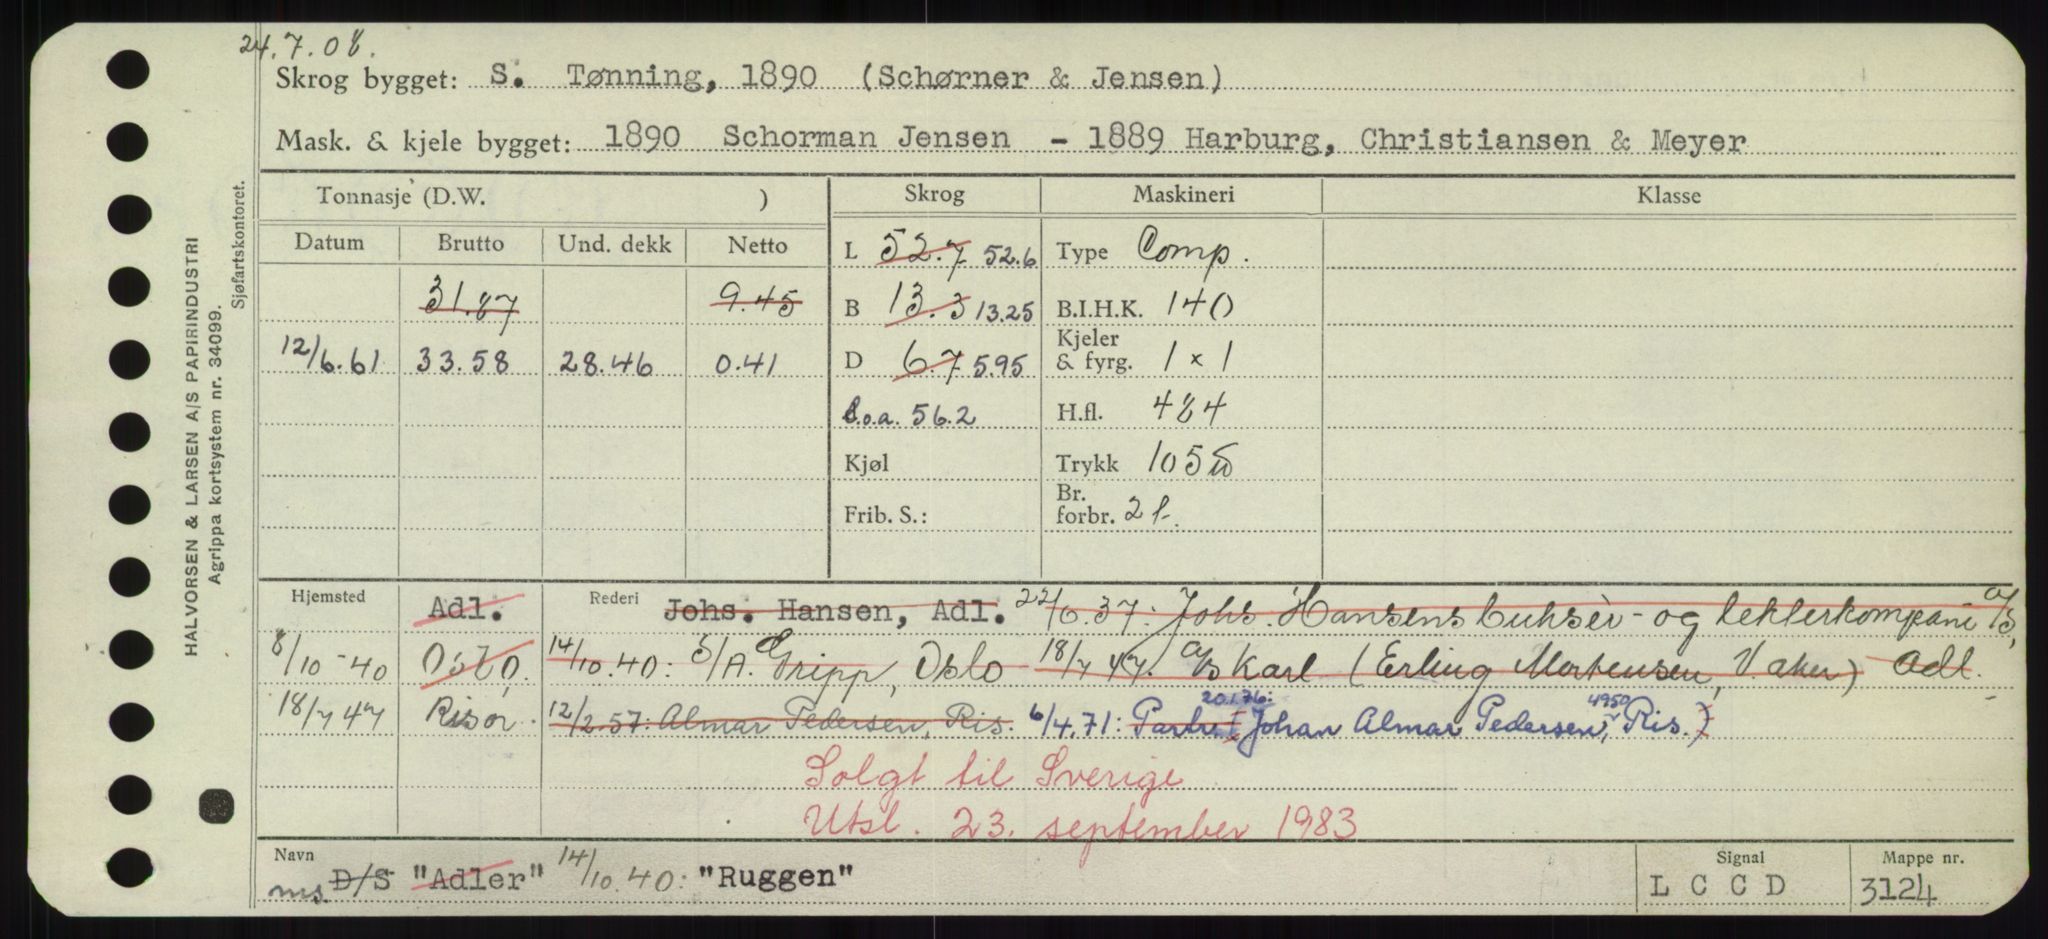 24.7.08.
Skrog bygget: S. Tønning, 1890 (Schørner & Jensen)
Mask. & kjele bygget: 1890 Schorman Jensen - 1889 Harburg, Christiansen & Meyer
HALVORSEN & LARSEN A/S PAPIRINDUSTRI
Agrippa kortsystem nr. 34099.
Sjøfartskontoret.
Tonnasje (D.W. ) Skrog Maskineri Klasse
Datum Brutto Und. dekk Netto
L 52.7 52.6 Type Comp.
31.87 9.45 B 13.3 13.25 B.I.H.K. 140
12/6.61 33.58 28.46 0.41 D 6.7 5.95 Kjeler & fyrg. 1 x 1
L.o.a. 56.2 H.fl. 484
Kjøl Trykk 105
Frib. S.: Br. forbr. 2 t.
Hjemsted Adl. Rederi Johs. Hansen, Adl. 22/6.37: Johs. Hansens buksèr- og lekterkompani A/S,
8/10-40 Oslo, 14/10.40: S/A. Gripp, Oslo 18/7 47. A/S Karl (Erling Mortensen, V. aker) Adl.
18/7 47 Risør. 12/2.57: Almar Pedersen, Ris. 6/4.71: Partr. 20.1.76: (Johan Almar Pedersen, 4950 Ris.)
Solgt til Sverige
Utsl. 23. september 1983
Navn ms. D/S "Adler" 14/10.40: "Ruggen"
Signal L C C D
Mappe nr. 3124